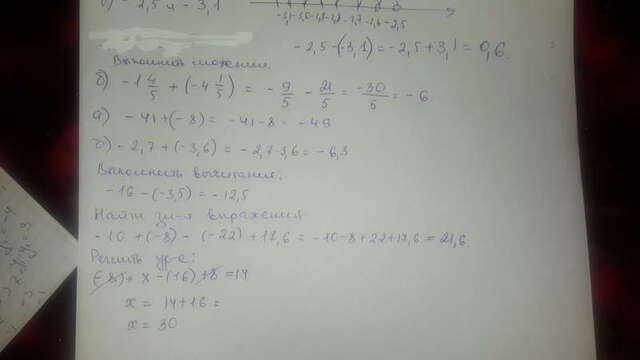 - 2,5 и - 3,1
- 2,5 -(-3,1) = -2,5 + 3,1 = 0,6
Выполнить сложение
б) -1 4/5 + (-4 1/5) = - 9/5 - 21/5 = -30/5 = - 6
а) - 41 + (- 8) = - 41 - 8 = - 49
б) - 2,7 + (-3,6) = - 2,7 - 3,6 = - 6,3
Выполнить вычитание:
- 16 - (-3,5) = - 12,5
Найти зн-я выражения
- 10 + (-8) - (-22) + 17,6 = -10 - 8 + 22 + 17,6 = 21,6
Решить ур-е:
(-8) + x - (16) + 8 = 14
x = 14 + 16 =
x = 30